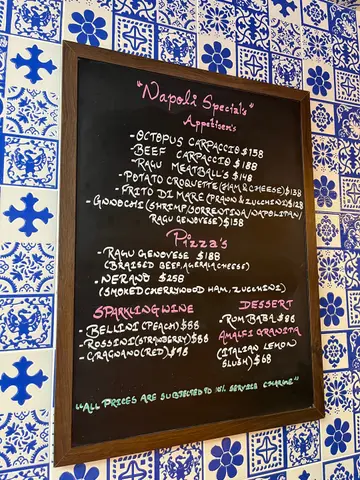 "Napoli Special's"
Appetiser's
- OCTOPUS CARPACCIO $158
- BEEF CARPACCIO $188
- RAGU MEATBALL'S $148
- POTATO CROQUETTE (HAM & CHEESE) $138
- FRITO DI MARE (PRAWN & ZUCCHINI) $128
- GNNOCHI (SHRIMP/SORRENTINA/NAPOLITAN/
RAGU GENOVESE) $158
Pizza's
- RAGU GENOVESE $188
(BRAISED BEEF, CHEESE)
- NERANO $258
(SMOKED CHERRYWOOD HAM, ZUCCHINI)
SPARKLING WINE
- BELLINI (PEACH) $88
- ROSSINI (STRAWBERRY) $88
- GRAGNANO (RED) $98
DESSERT
- RUM BABA $88
AMALFI GRANITA
(ITALIAN LEMON
SLUSH) $68
"ALL PRICES ARE SUBJECTED TO 10% SERVICE CHARGE"